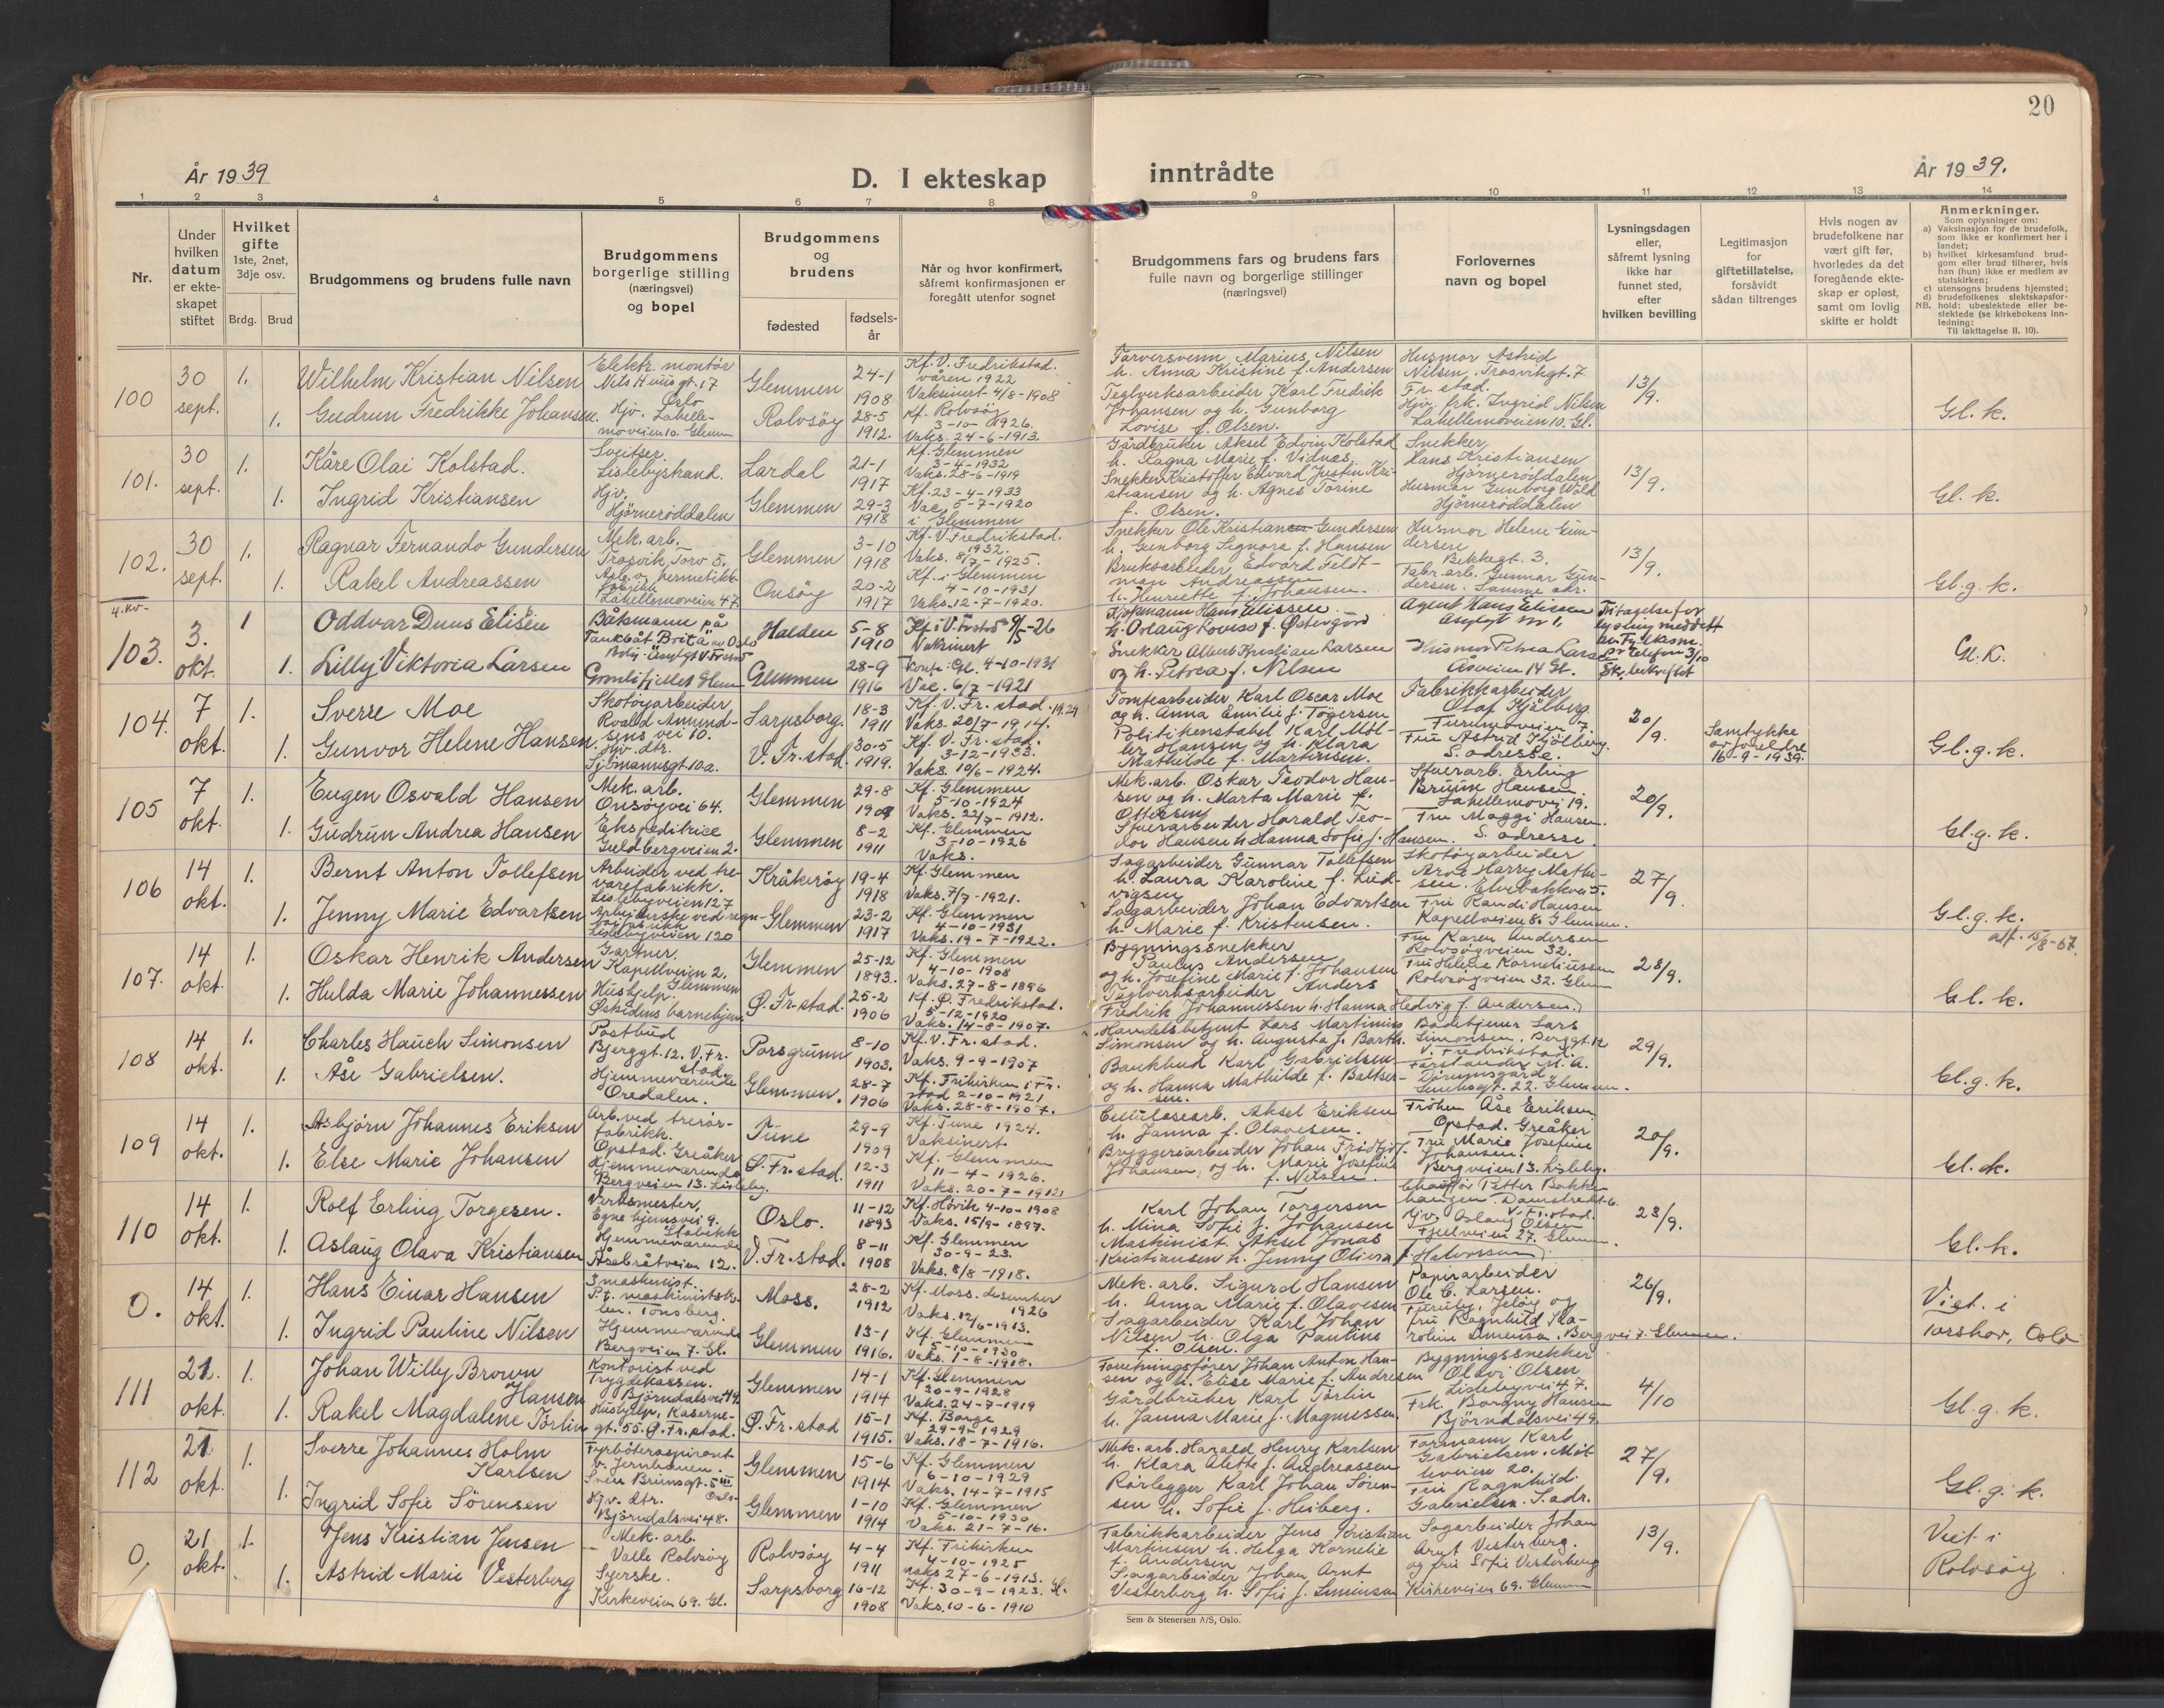 20
År 1939
D. I ekteskap inntrådte
År 1939.
1 2 3 4 5 6 7 8 9 10 11 12 13 14
Nr.
Under hvilken datum er ekteskapet stiftet
Hvilket gifte 1ste, 2net, 3dje osv.
Brdg. Brud
Brudgommens og brudens fulle navn
Brudgommens borgerlige stilling (næringsvei) og bopel
Brudgommens og brudens
fødested
fødselsår
Når og hvor konfirmert, såfremt konfirmasjonen er foregått utenfor sognet
Brudgommens fars og brudens fars fulle navn og borgerlige stillinger (næringsvei)
Forlovernes navn og bopel
Lysningsdagen eller, såfremt lysning ikke har funnet sted, efter hvilken bevilling
Legitimasjon for giftetillatelse, forsåvidt sådan tiltrenges
Hvis nogen av brudefolkene har vært gift før, hvorledes da det foregående ekteskap er opløst, samt om lovlig skifte er holdt
Anmerkninger.
Som oplysninger om:
a) Vaksinasjon for de brudefolk, som ikke er konfirmert her i landet;
b) hvilket kirkesamfund brudgom eller brud tilhører, hvis han (hun) ikke er medlem av statskirken;
c) utensogns brudens hjemsted;
d) brudefolkenes slektskapsforhold: ubeslektede eller beslektede (se kirkebokens innledning:
NB.
Til iakttagelse II. 10).
100
30 sept.
1. Wilhelm Kristian Nilsen
Elektr. montör
Nils Huusgt. 17
Oslo
Glemmen
24-1 1908
Kf. V. Fredrikstad.
våren 1922
Vaksinert 4/8-1908
Farversvenn Marius Nilsen
h. Anna Kristine f. Andersen
Husmor Astrid
Nilsen, Trosvikgt. 7
Fr. stad.
13/9.
1. Gudrun Fredrikke Johansen.
Hjv. Lahellemoveien 10. Glemm
Rolvsöy
28-5 1912.
Kf. Rolvsöy
3-10-1926.
Vaks. 24-6-1913
Teglverksarbeider Karl Fredrik
Johansen og h. Gunborg
Lovise f. Olsen.
Hjv. frk. Ingrid Nilsen
Lahellemoveien 10. Gl.
Gl. k.
101.
30 sept.
1. Kåre Olai Kolstad.
Sveitser.
Lislebystrand.
Lardal
21-1 1917
Kf. Glemmen
3-4-1932
Vaks. 28-6-1919
Gårdbruker Aksel Edvin Kolstad
h. Ragna Marie f. Vidnæs.
Snekker
Hans Kristiansen
Hjörneröddalen
13/9.
1. Ingrid Kristiansen
Hjv.
Hjörneröddalen
Glemmen
29-3 1918
Kf. 23-4-1933
Vac. 5-7-1920
i Glemmen
Snekker Kristoffer Edvard Justin Kristiansen og h. Agnes Torine
f. Olsen.
Husmor Gunborg Wold
Hjörneröddalen
Gl. k.
102.
30 sept.
1. Ragnar Fernando Gundersen
Mek. arb.
Trosvik Torv 5.
Glemmen
3-10 1918
Kf. V. Fredrikstad.
1932.
Vaks. 8/7-1925.
Snekker Ole Kristian Gundersen
h. Gunborg Signora f. Hansen
Husmor Helene Gundersen
Bekkegt. 3.
13/9.
1. Rakel Andreassen
Arb. v. hermetikkfabrikk
Lahellemoveien 47.
Onsöy
20-2 1917
Kf. i Glemmen
4-10-1931
Vaks. 12-7-1920.
Bruksarbeider Edvard Feldtman Andreassen
h. Henriette f. Johansen.
Fabr. arb. Gunnar Gundersen. Samme adr.
Gl. g. k.
4. kv.
103.
3. okt.
1 Oddvar Duus Elisen
Båtsmann på
Tankbåt "Brita" av Oslo
Halden
5-8 1910
Kf. i V. Frstad 9/5-26
Vaksinert
Kjöpmann Hans Elissen
h. Aslaug Lovise f. Östergård
Agent Hans Elissen
Asylgt. 1.
Fritagelse for lysning meddelt
av Fylksm.
pr telefon 3/10
Sk. bekreftet
1. Lilly Viktoria Larsen
Gronlifjellet Glem
Glemmen
28-9 1916
Konfr. Gl. 4-10-1931
Vac. 6/7-1921
Snekker Albert Kristian Larsen
og h. Petrea f. Nilsen
Husmor Petrea Larsen
Åsveien 14 Gl.
Gl. K.
104.
7 okt.
1. Sverre Moe
Skotöyarbeider
Roald Amundsens vei 10.
Sarpsborg.
18-3 1911
Kf. V. Fr. stad. 1929
Vaks. 20/7-1914.
Tomtearbeider Karl Oscar Moe
og h. Anna Emilie f. Tögersen
Fabrikkarbeider
Olaf Kjölberg.
Furumoveien 7.
20/9.
Samtykke
av foreldre
16-9-1939.
1. Gunvor Helene Hansen.
Hjv. dtr.
Sjömannsgt 10a.
V. Fr. stad.
30-5 1919.
Kf. V. Fr. stad.
3-12-1933.
Vaks. 10/6-1924.
Politikonstabel Karl Möller Hansen og h. Klara
Mathilde f. Martinsen.
Fru Astrid Kjölberg
S. adresse.
Gl. g. k.
105
7 okt.
1. Eugen Osvald Hansen
Mek. arb.
Onsöyvei 64.
Glemmen
29-8 1909
Kf. Glemmen
5-10-1924
Vaks. 22/7-1912.
Mek. arb. Oskar Teodor Hansen og h. Marta Marie f.
Ottersen
Stuerarb. Erling
Bruun Hansen.
Lahellemovei 19.
20/9.
1. Gudrun Andrea Hansen
Ekspeditrice
Guldbergveien 2.
Glemmen
8-2 1911
Kf. Glemmen
3-10-1926
Vaks.
Stuerarbeider Harald Teodor Hansen h. Hanna Sofie f. Hansen.
Fru Maggi Hansen.
S. adresse.
Gl. g. k.
106
14 okt.
1. Bernt Anton Tollefsen
Arbeider ved trevarefabrikk.
Lislebyveien 127
Kråkeröy
19-4 1918
Kf. Glemmen
Vaks. 7/7-1921.
Sagarbeider Gunnar Tollefsen
h. Laura Karoline f. Ludvigsen
Skotöyarbeider
Arve Harry Mathisen. Elvebakkvei 5.
27/9.
1. Jenny Marie Edvartsen
Lislebyveien 120
Glemmen
23-2 1917
Kf. Glemmen
4-10-1931
Vaks. 19-7-1922.
Sagarbeider Johan Edvartsen
h. Marie f. Kristensen.
Fru Randi Hansen
Kapellveien 8. Glemmen.
Gl. g. k.
att. 15/8-67.
107.
14 okt.
1. Oskar Henrik Andersen
Gartner.
Kapellveien 2.
Glemmen
Glemmen
25-12 1893.
Kf. Glemmen
4-10-1908
Vaks. 27-8-1896
Bygningssnekker
Paulus Andersen
og h. Josefine Marie f. Johansen
Fru Karen Andersen
Rolvsöyveien 32.
28/9.
1. Hulda Marie Johannessen
Hushjelp.
Östsidens barnehjem
Ø. Fr. stad.
25-2 1906
Kf. Ø. Fredrikstad.
5-12-1920
Vaks. 14-8-1907.
Teglverksarbeider Anders
Fredrik Johannessen h. Hanna Hedvig f. Andersen.
Fru Helene Korneliussen
Rolvsöyveien 32. Glem
Gl. k.
108
14 okt.
1. Charles Hauch Simonsen
Postbud
Bjerggt. 12. V. Fr. stad.
Porsgrunn
8-10 1903.
Kf. V. Fr. stad.
Vaks. 9-9-1907
Handelsbetjent Lars Martinius
Simonsen og h. Augusta f. Barth.
Badebjener Lars
Simonsen. Berggt. 12
V. Fredrikstad.
29/9.
1. Åse Gabrielsen.
Hjemmeværende
Oredalen.
Glemmen.
28-7 1906
Kf. Frikirken i Fr.
stad 2-10-1921
Vaks. 28-8-1907.
Bankbud Karl Gabrielsen
og h. Hanna Mathilde f. Baltsersen.
Forstander M. A.
Gl. g. k.
109
14 okt.
1. Asbjörn Johannes Eriksen
Arb. ved trerörfabrikk.
Opstad. Greåker
Tune
29-9 1909
Kf. Tune 1924.
Vaksinert
Cellulosearb. Aksel Eriksen
h. Janna f. Olavesen.
Fröken Åse Eriksen
Opstad. Greåker
20/9.
1. Else Marie Johansen
Hjemmeværende
Bergveien 13. Lisleby.
Ø. Fr. stad.
12-3 1911
Kf. Glemmen
11-4-1926.
Vaks. 20-7-1912
Bryggeriarbeider Johan Fridtjof
Johansen, og h. Marie Josefine
f. Nilsen.
Fru Marie Josefine
Johansen.
Bergveien 13. Lisleby.
Gl. k.
110
14 okt.
1. Rolf Erling Torgersen.
Verksmester,
Egne hjemsvei 9.
Stabekk
Oslo.
11-12 1893
Kf. Hövik 4-10-1908
Vaks. 15/9-1897.
Karl Johan Torgersen
h. Mina Sofie f. Johansen
Chaufför Petter Bakkehaugen. Damstredet 6.
V. Fr. stad.
28/9.
1. Aslaug Olava Kristiansen
Hjemmeværende
Åsebråtveien 12.
V. Fr. stad.
8-11 1908
Kf. Glemmen
30-9-23.
Vaks. 8/8-1918.
Maskinist Aksel Jonas
Kristiansen h. Jenny Olivia f. Halvorsen.
Hjv. Aslaug Olsen
Fjellveien 27. Glemm.
Gl. k.
0.
14 okt.
1. Hans Einar Hansen
3 maskinist.
P. t. maskinistskolen. Tönsberg.
Moss.
28-2 1912
Kf. Moss. desember
1926
Vaks. 12/6-1913.
Mek. arb. Sigurd Hansen
h. Anna Marie f. Olavesen
Papirarbeider
Ole C. Larsen.
Furuly. Jelöy og
26/9.
1. Ingrid Pauline Nilsen
Hjemmeværende
Bergveien 7. Gl.
Glemmen
13-1 1916.
Kf. Glemmen
5-10-1930
Vaks. 1-8-1918.
Sagarbeider Karl Johan
Nilsen h. Olga Pauline
f. Olsen.
fru Ragnhild Karoline Simensen. Bergvei 7. Glemmen.
Viet i
Torshov, Oslo
111
21. okt.
1. Johan Willy Brown
Hansen
Kontorist ved
Trygdekassen.
Björndalsvei 49
Glemmen
14-1 1914
Kf. Glemmen
30-9-1928
Vaks. 24-7-1919
Forretningsfører Johan Anton Hansen og h. Elise Marie f. Andresen
Bygningssnekker
Olavi Olsen
Lislebyvei 47.
4/10
1. Rakel Magdalene Törlin
Hushjelp, Kasernegt. 55. Ø. Fr. stad.
Ø. Fr. stad
15-1 1915.
Kf. Borge
29-9-1929
Vaks. 18-7-1916.
Gårdbruker Karl Törlin
h. Janna Marie f. Magnussen.
Frk. Borgny Hansen
Björndalsvei 49.
Gl. g. k.
112
21 okt.
1. Sverre Johannes Holm
Karlsen
Fyrböteraspirant
v. Jernbanen.
Sven Bruunsgt. 5 III
Oslo
Glemmen
15-6 1914
Kf. Glemmen
6-10-1929
Vaks. 14-7-1915
Mek. arb. Harald Henry Karlsen
h. Klara Alette f. Andreassen
Formann Karl
Gabrielsen.
27/9.
1. Ingrid Sofie Sörensen
Hjv. dtr.
Björndalsvei 48.
Glemmen
1-10 1914
Kf. Glemmen
5-10-1930
Vaks. 21-7-16.
Rörlegger Karl Johan Sörensen h. Sofie f. Heiberg.
Fru Ragnhild
Gabrielsen. S. adr.
Gl. g. k.
0,
21 okt.
1. Jens Kristian Jensen
Mek. arb.
Valle Rolvsöy
Rolvsöy
4-4 1911
Kf. Frikirken
4-10-1925
vaks 27-6-1913.
Fabrikkarbeider Jens Kristian
Martinsen h. Helga Kornelie
f. Andersen
Sagarbeider Johan
Arnt Vesterberg.
13/9.
1. Astrid Marie Vesterberg
Syerske.
Kirkeveien 69. Gl.
Sarpsborg
16-12 1908
Kf. 30-9-1923. Gl.
Vaks. 10-6-1910
Sagarbeider Johan Arnt
Vesterberg h. Sofie f. Simensen
og fru Sofie Vesterberg
Kirkeveien 69. Glemmen
Viet i
Rolvsöy
Sem & Stenersen A/S, Oslo.